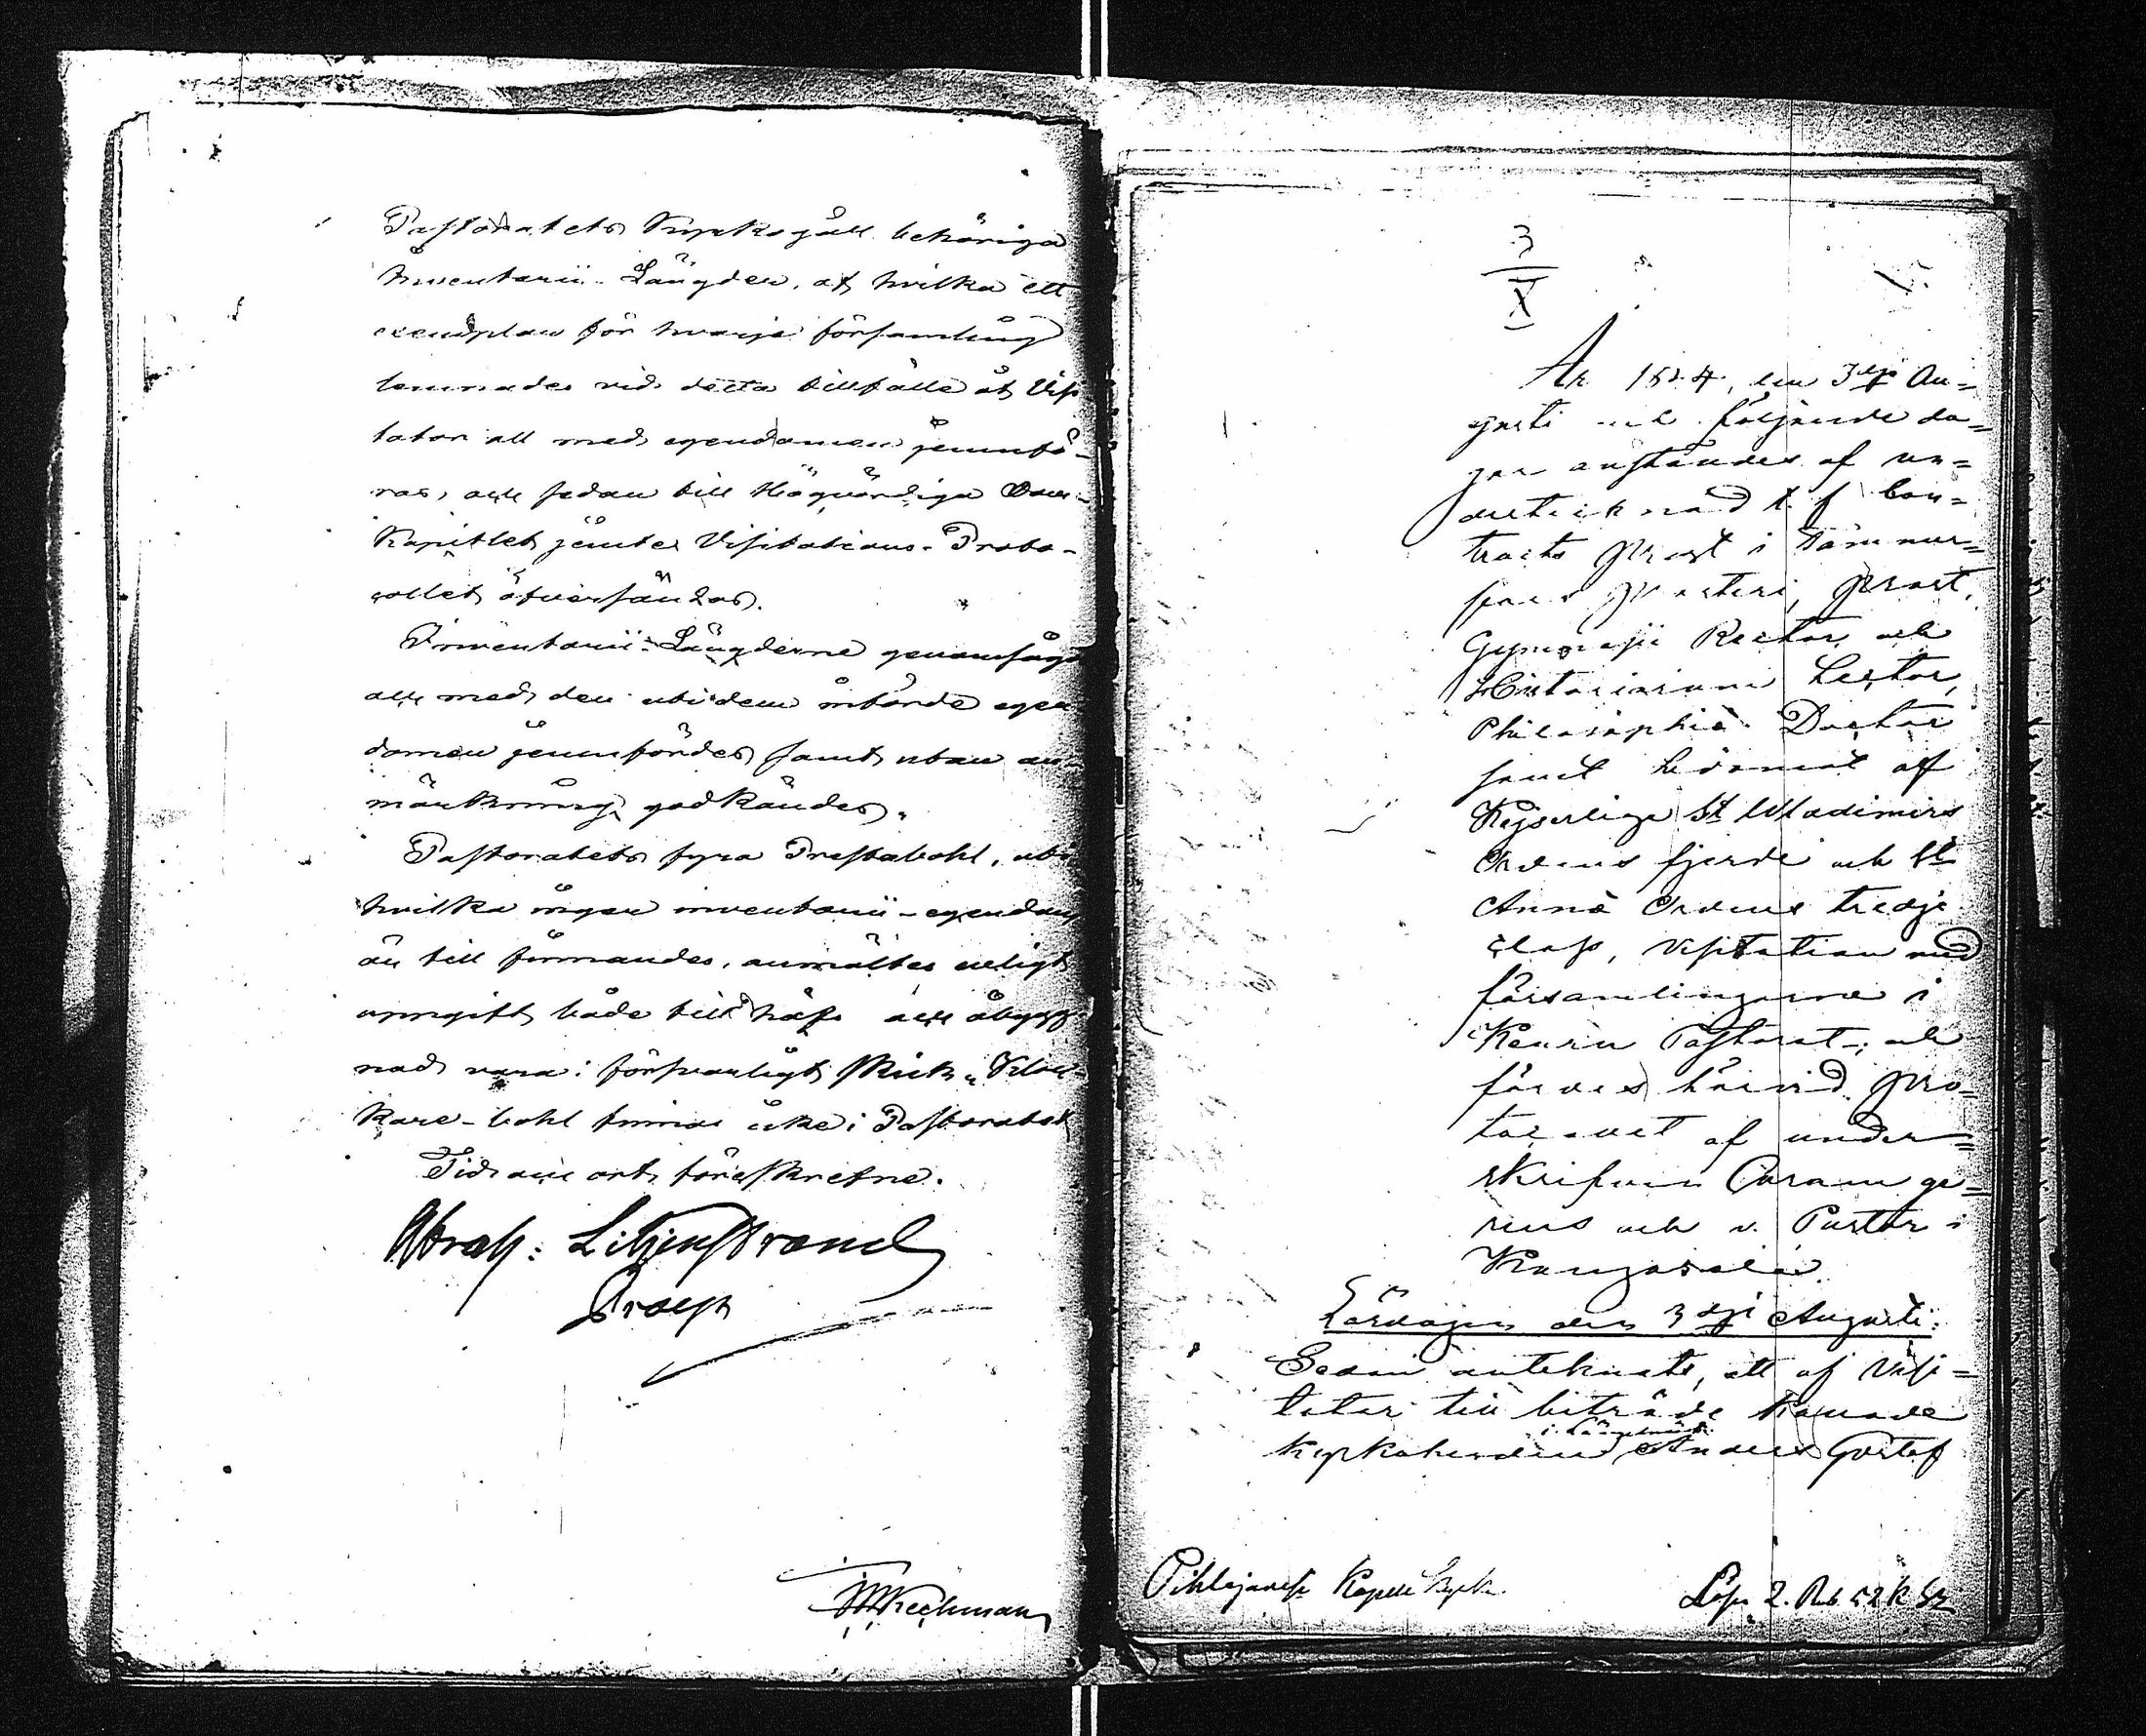 Pastoratets Kyrkogåll behöriga
Inventarii-Längder, af hvilka ett
exemplar för hvarje församling
lemnades vid detta tillfälle åt Visi
tator att med egendomen jemnfö-
ras, och sedan till Högvördiga Dom-
Kapitlet jemte Visitations-Proto-
collet öfversändas.
Inventarii-Längderne genomsågs
och med den uti dem införde egen
domen jemnfördes samt utan an-
märkning godkändes.
Pastoratets fyra Prestabohl, uti
hvilka ingen inventarii-egendom
är till finnandes, anmältes enligt
uppgift både till häfd och åbygg
nad vara i försvarligt skick. Kloc-
kare-bohl finnes icke i Pastoratet
Tid och ort föreskrefne.
Abrah: Liljenstrand
Prosep
3
X
År 1844, den 3dje Au=
gusti och följande da=
gar anstäldes af un=
dertecknad t. f. Con=
tracts Prost i Tammer=
fors Prosteri, Prost,
Gymnasii Rector och
Historiarum Lector,
Philosophiæ Doctor
samt Ledamot af
Kejserliga St Wladimirs
Ordens fjerde och St
Annæ Ordens tredje
class, visitation med
församlingarne i
Keuru Pastorat; och
fördes härvid Pro=
tocollet af under=
skrifven
och v. Pastor i
Kangasala.
Lördagen den 3dje Augusti.
Sedan antecknats, att af Visi=
tator till biträde
Kyrkoherden Anders Gustaf
Pihlajavesi Kapell Kyrk.